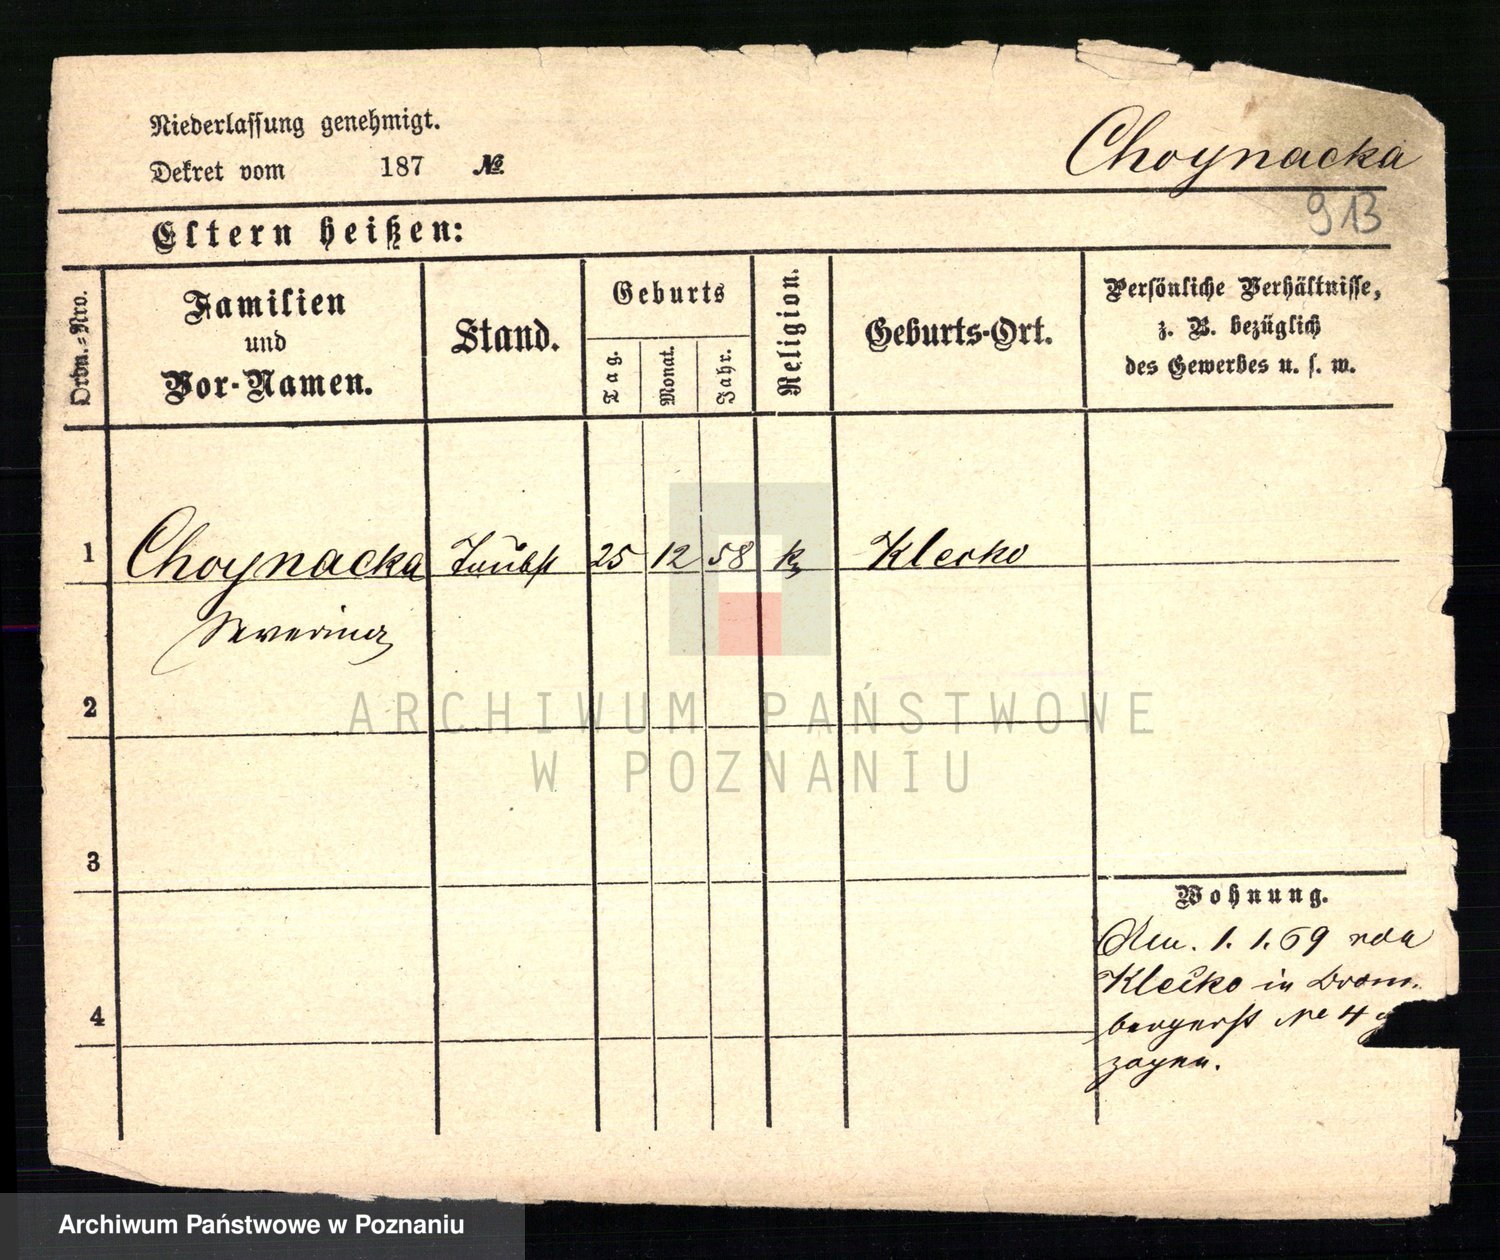 Niederlassung genehmigt.
Dekret vom 187 №
Choynacka
913
Eltern heißen:
Ordn.-Nro.
Familien
und
Vor-Namen.
Stand.
Geburts
Tag.
Monat.
Jahr.
Religion.
Geburts-Ort.
Persönliche Verhältnisse,
z. B. bezüglich
des Gewerbes u. s. w.
1 Choynacka Taubst 25 12 58 k Klecko
Severina
2
3
4
Wohnung.
1. 1. 69
Klecko in Brom-
bergerst No 4 g
zogen.
ARCHIWUM PAŃSTWOWE
W POZNANIU
Archiwum Państwowe w Poznaniu